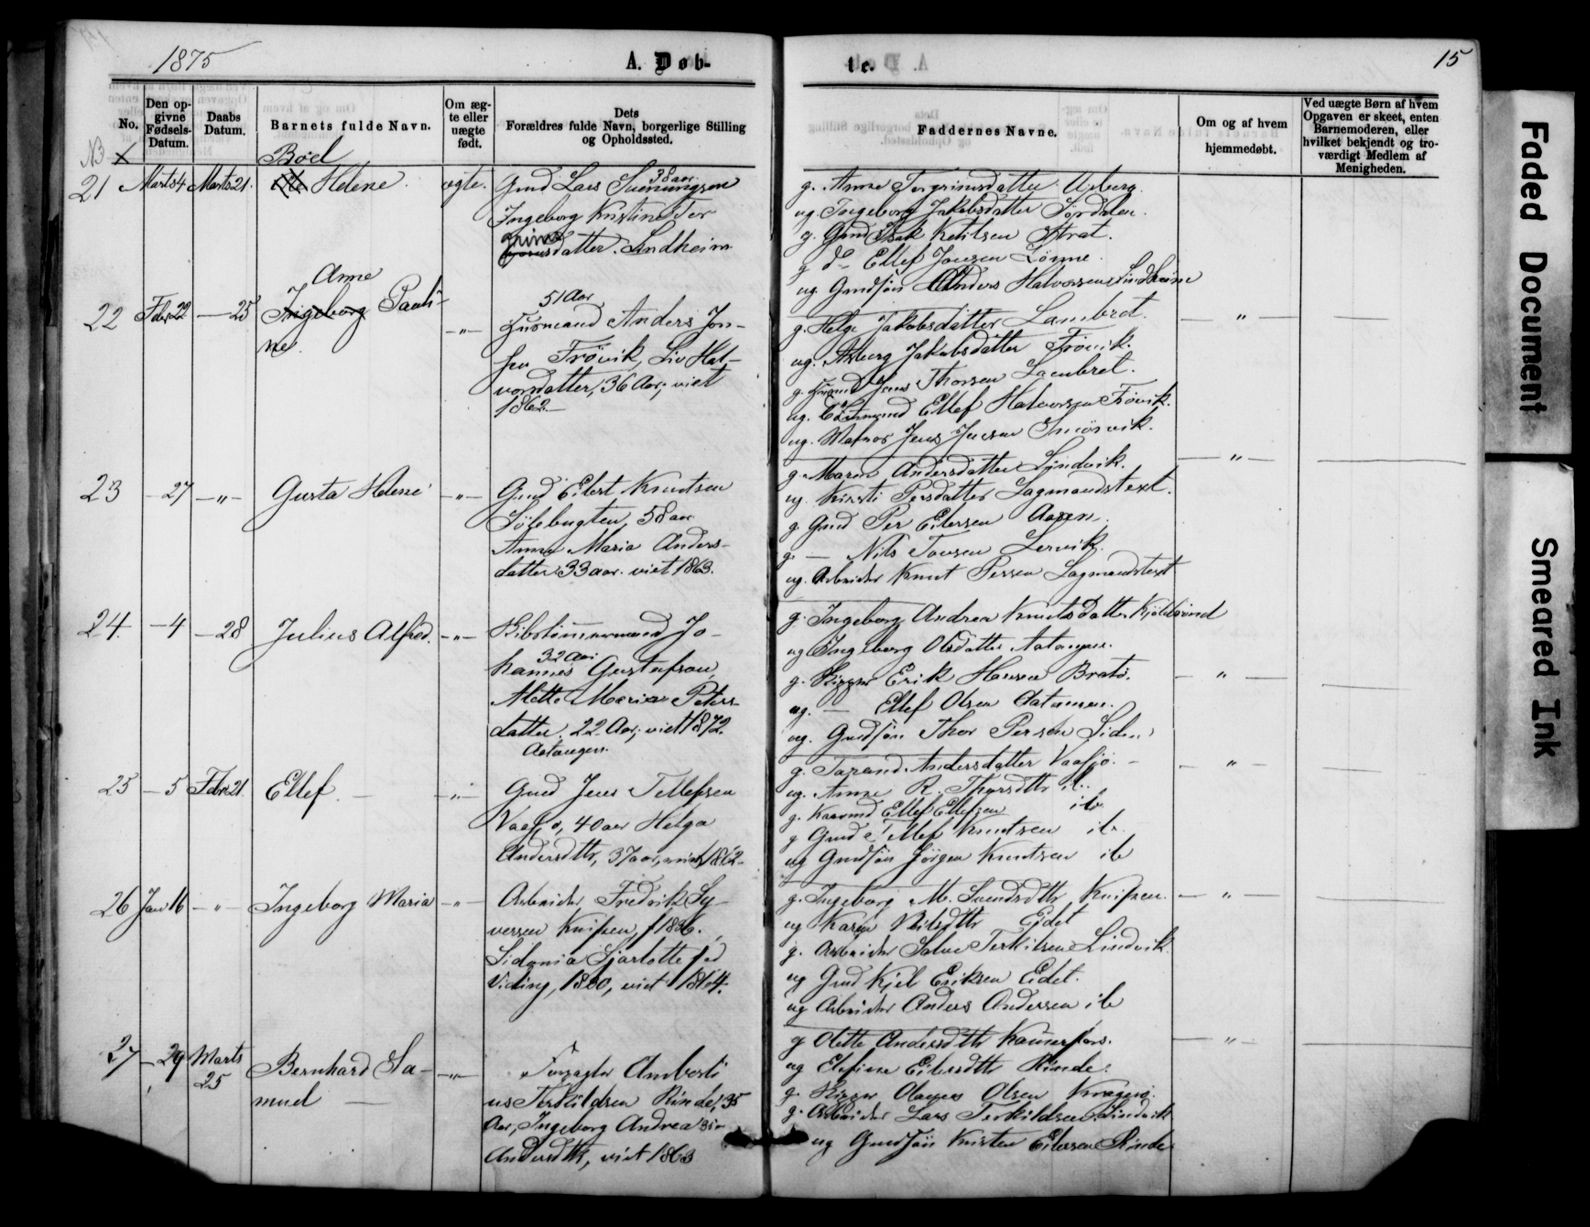 1875
A. Døb-
te.
15
No.
Den op-
givne
Fødsels-
Datum.
Daabs
Datum.
Barnets fulde Navn.
Om æg-
te eller
uægte
født.
Dets
Forældres fulde Navn, borgerlige Stilling
og Opholdssted.
Faddernes Navne.
Om og af hvem
hjemmedøbt.
Ved uægte Børn af hvem
Opgaven er skeet, enten
Barnemoderen, eller
hvilket bekjendt og tro-
værdigt Medlem af
Menigheden.
NB X
21 Marts 4 Marts 21.
Boel
Helene.
ægte.
38 aar
Gmd Lars
Ingeborg Kristine Ter
grims
datter. Lindheim
g. Anne Torgrimsdatter Aaberg.
ug Ingeborg Jakobsdatter Sørdalen.
g. Gmd Isak Ketilsen Strat.
g do Ellef Jensen Lønne.
ug Gmdsøn Anders Halvorsen Lindheim
22 Febr 22 — 25
Anne
Ingeborg Pauli-
ne.
— " —
51 Aar
Husmand Anders Jon-
sen Frøvik, Liv Hal-
vorsdatter, 36 Aar, viet
1862 —
g. Helge Jakobsdatter Lambret.
ug. Asberg Jakobsdatter Frøvik.
g. Jens Thorsen Lambret.
ug. Ellef Halvorsen Frøvik.
ug. Matros Jens Jensen
— " —
23 — 27 — " —
Gusta Helene
— " —
Gmd Eilert Knutsen
Sølebugten, 58 aar
Anne Maria Anders-
datter 33 aar. viet 1863.
g. Maren Andersdatter Lindvik.
ug. Kirsti Persdatter Lagmandstext.
g. Gmd Per Eilersen Aasen.
g. — Nils Tovsen Lervik.
ug. Arbeider Knut Persen Lagmandstext
— " —
24. — 4 — 28
Julius Alfred.
— " —
Skibstømmermand Jo-
32 Aar
hannes Gustafson,
Mette Maria Peters-
datter, 22 Aar, viet 1872.
Aatangen.
g. Ingeborg Andrea Knutsdatter
ug Ingeborg Olsdatter Aatangen.
g. Skipper Erik Hansen Bratø.
ug. — Ellef Olsen Aatangen.
ug. Gmdsøn Thor Persen Siden
— " —
25 — 5 Febr. 21.
Ellef. —
— " —
Gmd Jens Tellefsen
Vaasjø, 40 aar Helga
Andersdtr, 37 aar, viet 1862.
g. Tarand Andersdatter Vaasjø. —
ug. Anne R. Thorsdtr ib.
g. Ellef Ellefsen ib
g Gmd Ellef Knutsen ib.
ug Gmdsøn Jørgen Knutsen ib
— " —
26 Jan 16 — " —
Ingeborg Maria
— " —
Arbeider Fredrik Sy-
versen Knipen, f 1836.
Sidonia Sjarlotte fød
Viding, 1830, viet 1864.
g. Ingeborg M. Svendsdtr Knipen.
ug Karen Nilsdtr Eidet
g. Arbeider Salve Terkilsen Lindvik
ug Gmd Kjel Eriksen Eidet.
ug Arbeider Anders Andersen ib
— " —
27 — 29 Marts
25
Bernhard Sa-
muel —
— " —
Forpagter Amberti
us Terkildsen Rinde, 35
Aar, Ingeborg Andrea 35 —
Andersdtr, viet 1863
g Olette Andersdtr Kammerfos.
ug Elefine Eilersdtr Rinde.
g. Skipper Olsen Kragerø.
g. Arbeider Lars Terkildsen Lindvik
ug Gmdsøn Kristen Eilersen Rinde.
— " —
Faded Document
Smeared Ink